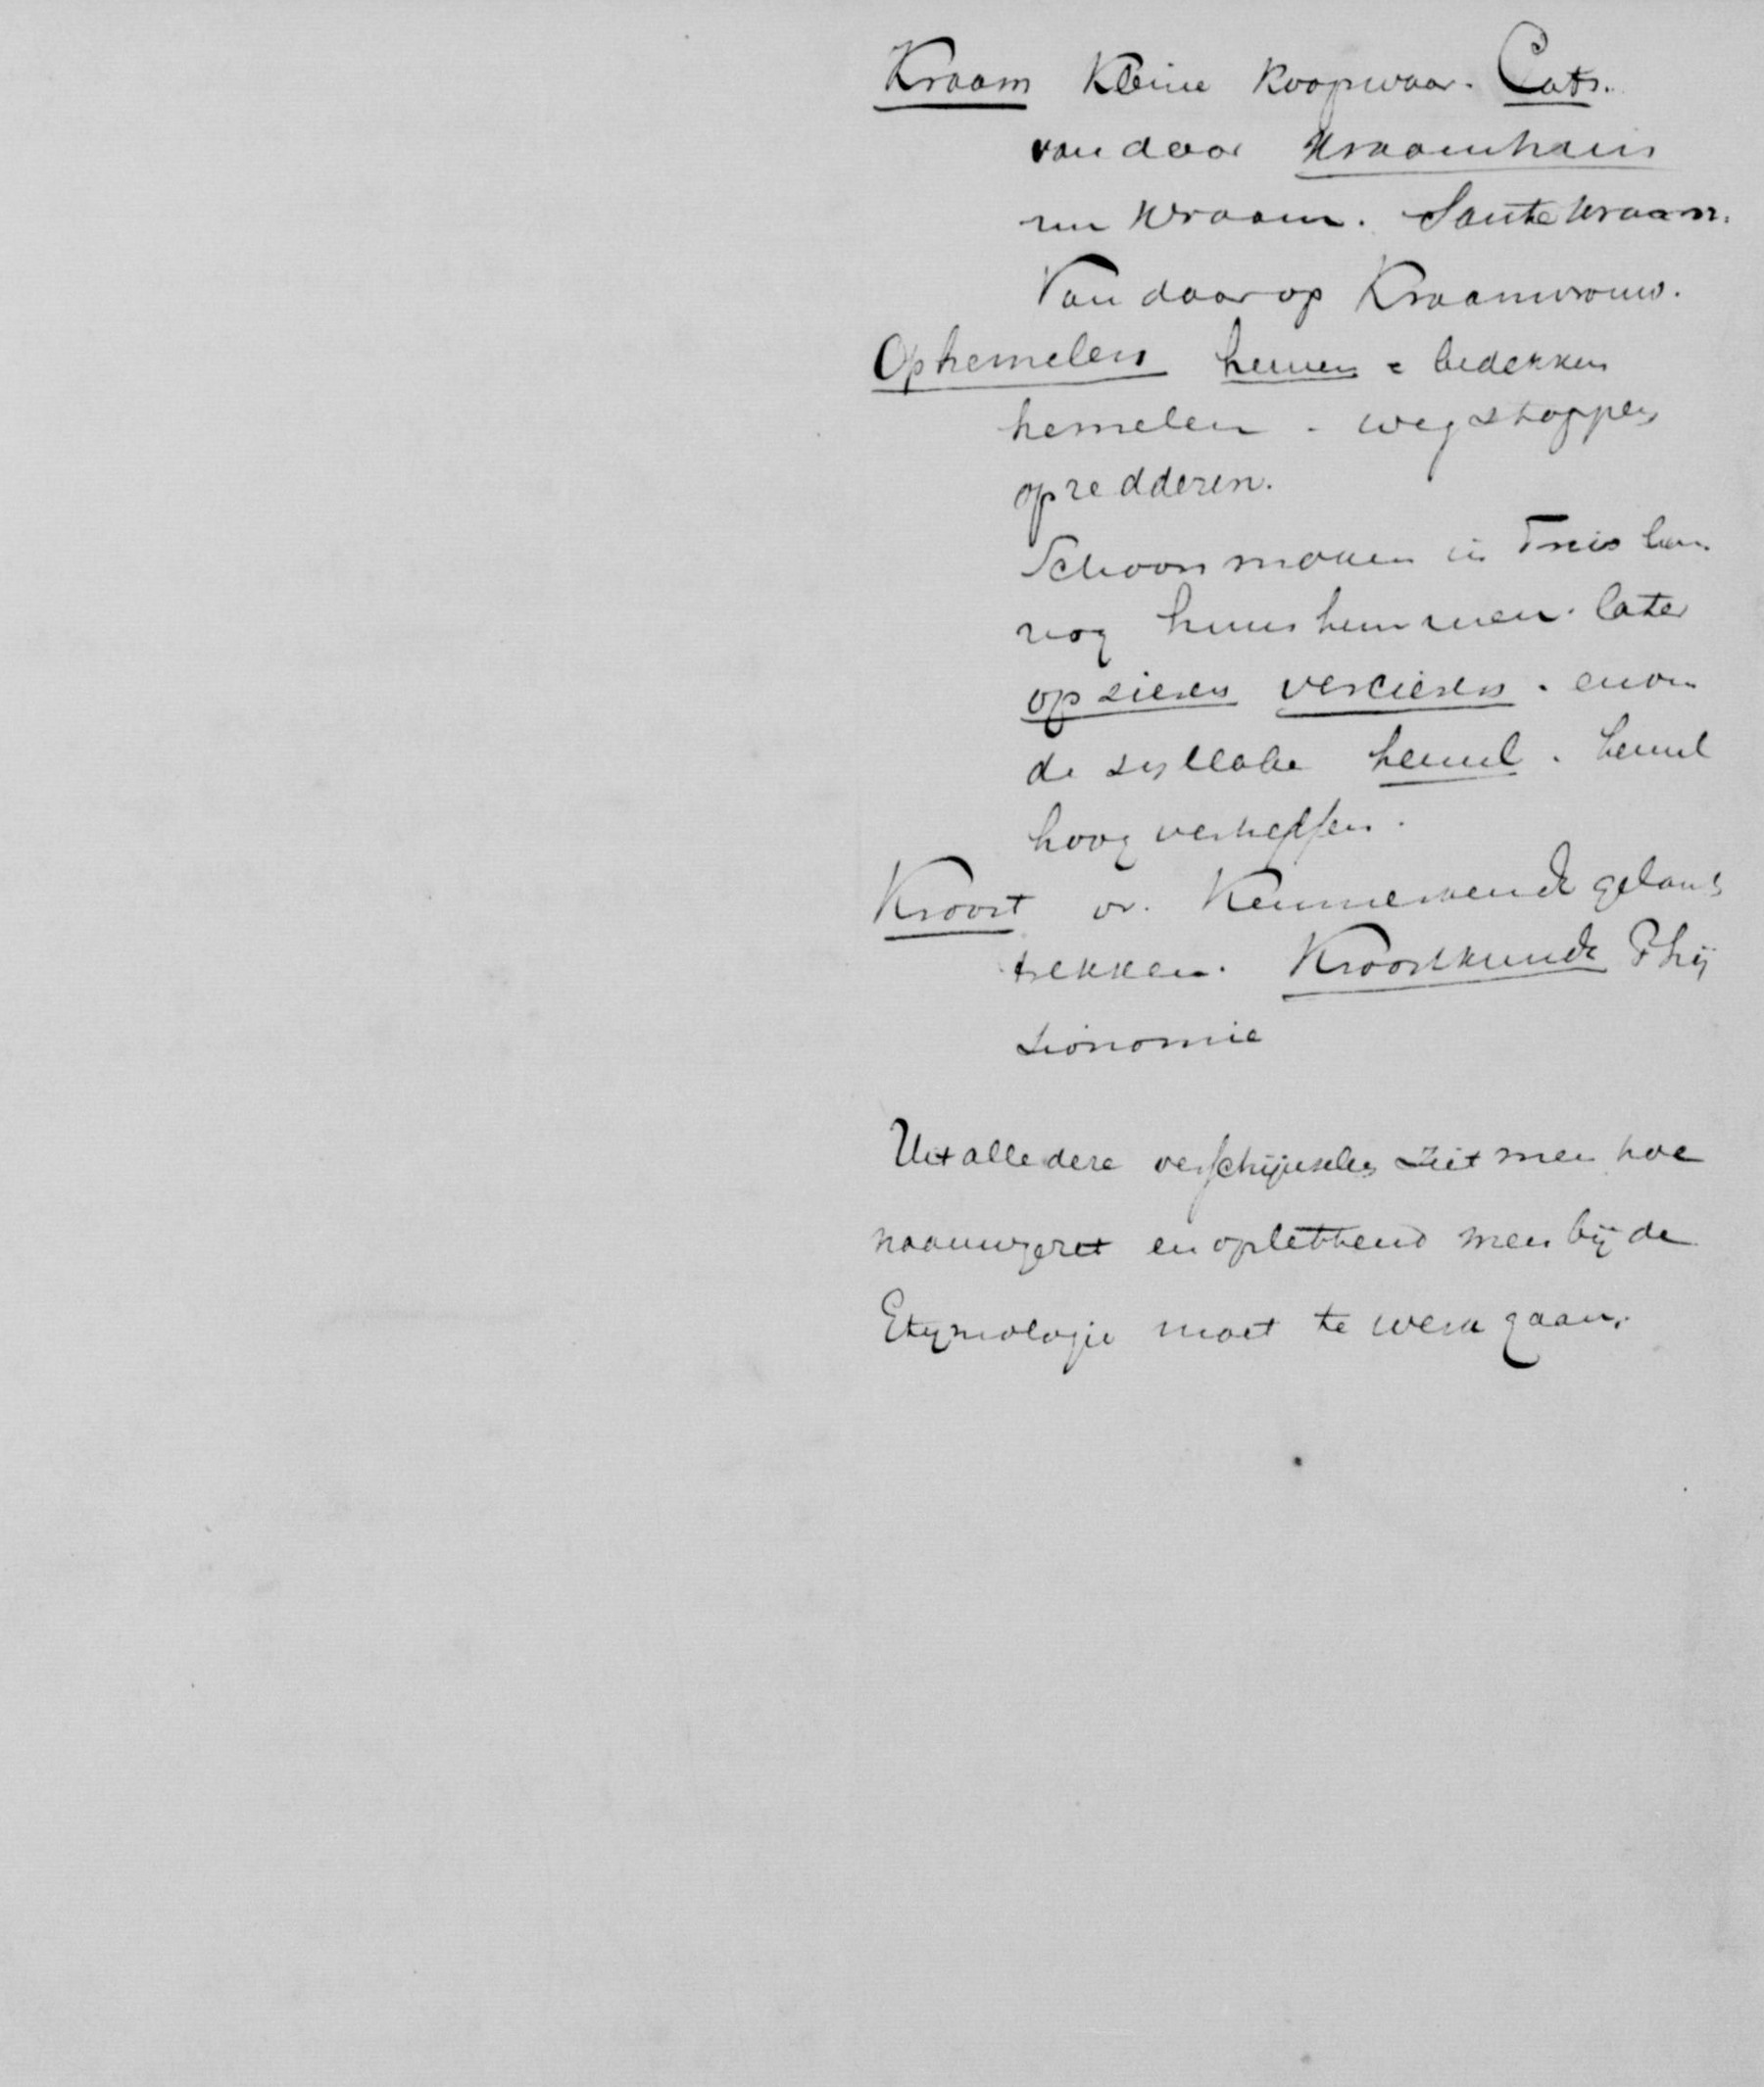 Kraam Kleine Koopwaar. Cats.
van daar Kraamhuis
nu Kraam. Santekraam.
Van daar op Kraamvrouw.
Ophemelen hemen = bedekken
hemelen - weg stoppen
opredderen.
Schoonmaken in
nog later
opsieren versieren.
de syllabe hemel. hemel
hoog verheffen.
Kroost or. Kenmerkende gelaats
trekken. Kroostkunde Phij
sionomie
Uit alle deze verschijnselen ziet men hoe
naauwgezet en oplettend men bij de
Etymologie moet te werk gaan.